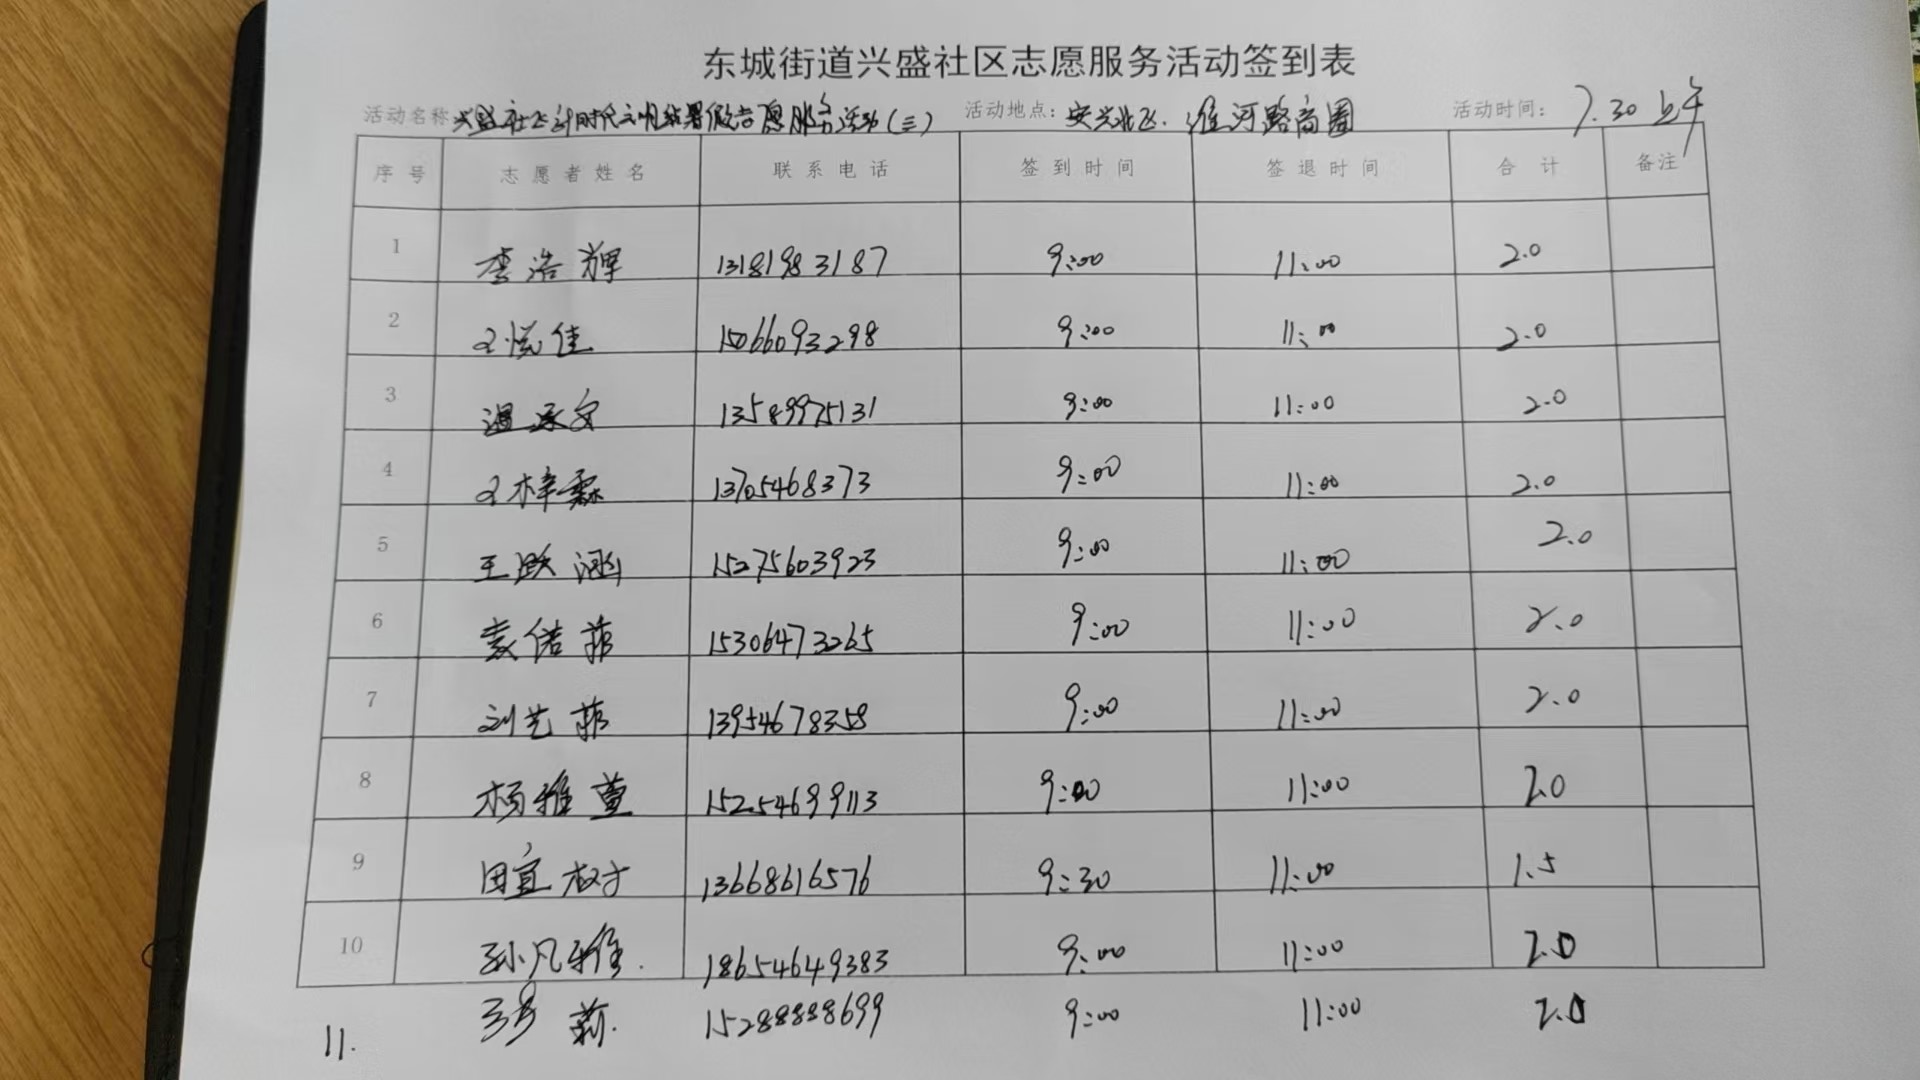 东城街道兴盛社区志愿服务活动签到表
活动名称 兴盛社区新时代文明实践暑假志愿服务活动(三) 活动地点: 安兴北区.淮河路商圈 活动时间: 7.30上午
序号 志愿者姓名 联系电话 签到时间 签退时间 合计 备注
1 李浩辉 13181983187 9:00 11:00 2.0
2 王悦佳 15066093298 9:00 11:00 2.0
3 温承文 13589975131 9:00 11:00 2.0
4 王梓霖 13705468373 9:00 11:00 2.0
5 王跃涵 15275603923 9:00 11:00 2.0
6 袁偌菲 15306473265 9:00 11:00 2.0
7 刘艺菲 13954678358 9:00 11:00 2.0
8 杨雅萱 15254699113 9:00 11:00 2.0
9 田宜 13668616576 9:30 11:00 1.5
10 孙凡雅. 18654649383 9:00 11:00 2.0
11. 莉. 15288888699 9:00 11:00 2.0